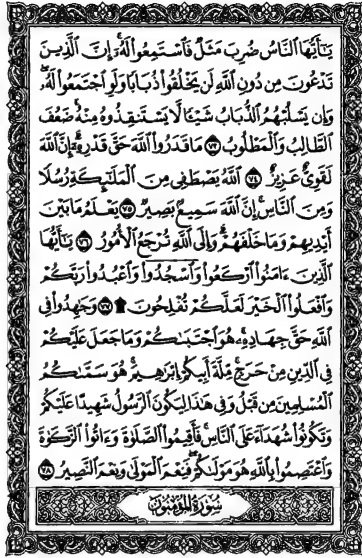 يَـٰٓأَيُّهَا ٱلنَّاسُ ضُرِبَ مَثَلٌ فَٱسْتَمِعُوا۟ لَهُۥٓ ۚ إِنَّ ٱلَّذِينَ
تَدْعُونَ مِن دُونِ ٱللَّهِ لَن يَخْلُقُوا۟ ذُبَابًا وَلَوِ ٱجْتَمَعُوا۟ لَهُۥ ۖ
وَإِن يَسْلُبْهُمُ ٱلذُّبَابُ شَيْـًٔا لَّا يَسْتَنقِذُوهُ مِنْهُ ۚ ضَعُفَ
ٱلطَّالِبُ وَٱلْمَطْلُوبُ ٧٣ مَا قَدَرُوا۟ ٱللَّهَ حَقَّ قَدْرِهِۦٓ ۗ إِنَّ ٱللَّهَ
لَقَوِىٌّ عَزِيزٌ ٧٤ ٱللَّهُ يَصْطَفِى مِنَ ٱلْمَلَـٰٓئِكَةِ رُسُلًا
وَمِنَ ٱلنَّاسِ ۚ إِنَّ ٱللَّهَ سَمِيعٌۢ بَصِيرٌ ٧٥ يَعْلَمُ مَا بَيْنَ
أَيْدِيهِمْ وَمَا خَلْفَهُمْ ۗ وَإِلَى ٱللَّهِ تُرْجَعُ ٱلْأُمُورُ ٧٦ يَـٰٓأَيُّهَا
ٱلَّذِينَ ءَامَنُوا۟ ٱرْكَعُوا۟ وَٱسْجُدُوا۟ وَٱعْبُدُوا۟ رَبَّكُمْ
وَٱفْعَلُوا۟ ٱلْخَيْرَ لَعَلَّكُمْ تُفْلِحُونَ ۩ ٧٧ وَجَـٰهِدُوا۟ فِى
ٱللَّهِ حَقَّ جِهَادِهِۦ ۚ هُوَ ٱجْتَبَىٰكُمْ وَمَا جَعَلَ عَلَيْكُمْ
فِى ٱلدِّينِ مِنْ حَرَجٍ ۚ مِّلَّةَ أَبِيكُمْ إِبْرَٰهِيمَ ۚ هُوَ سَمَّىٰكُمُ
ٱلْمُسْلِمِينَ مِن قَبْلُ وَفِى هَـٰذَا لِيَكُونَ ٱلرَّسُولُ شَهِيدًا عَلَيْكُمْ
وَتَكُونُوا۟ شُهَدَآءَ عَلَى ٱلنَّاسِ ۚ فَأَقِيمُوا۟ ٱلصَّلَوٰةَ وَءَاتُوا۟ ٱلزَّكَوٰةَ
وَٱعْتَصِمُوا۟ بِٱللَّهِ هُوَ مَوْلَىٰكُمْ ۖ فَنِعْمَ ٱلْمَوْلَىٰ وَنِعْمَ ٱلنَّصِيرُ ٧٨
سُورَةُ المُؤْمِنُونَ